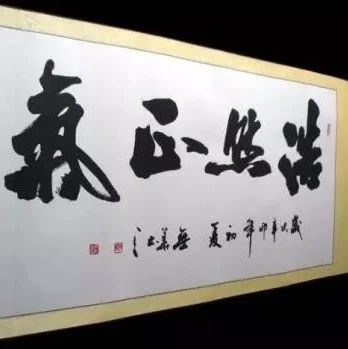 浩然正氣
歲次辛卯年初夏